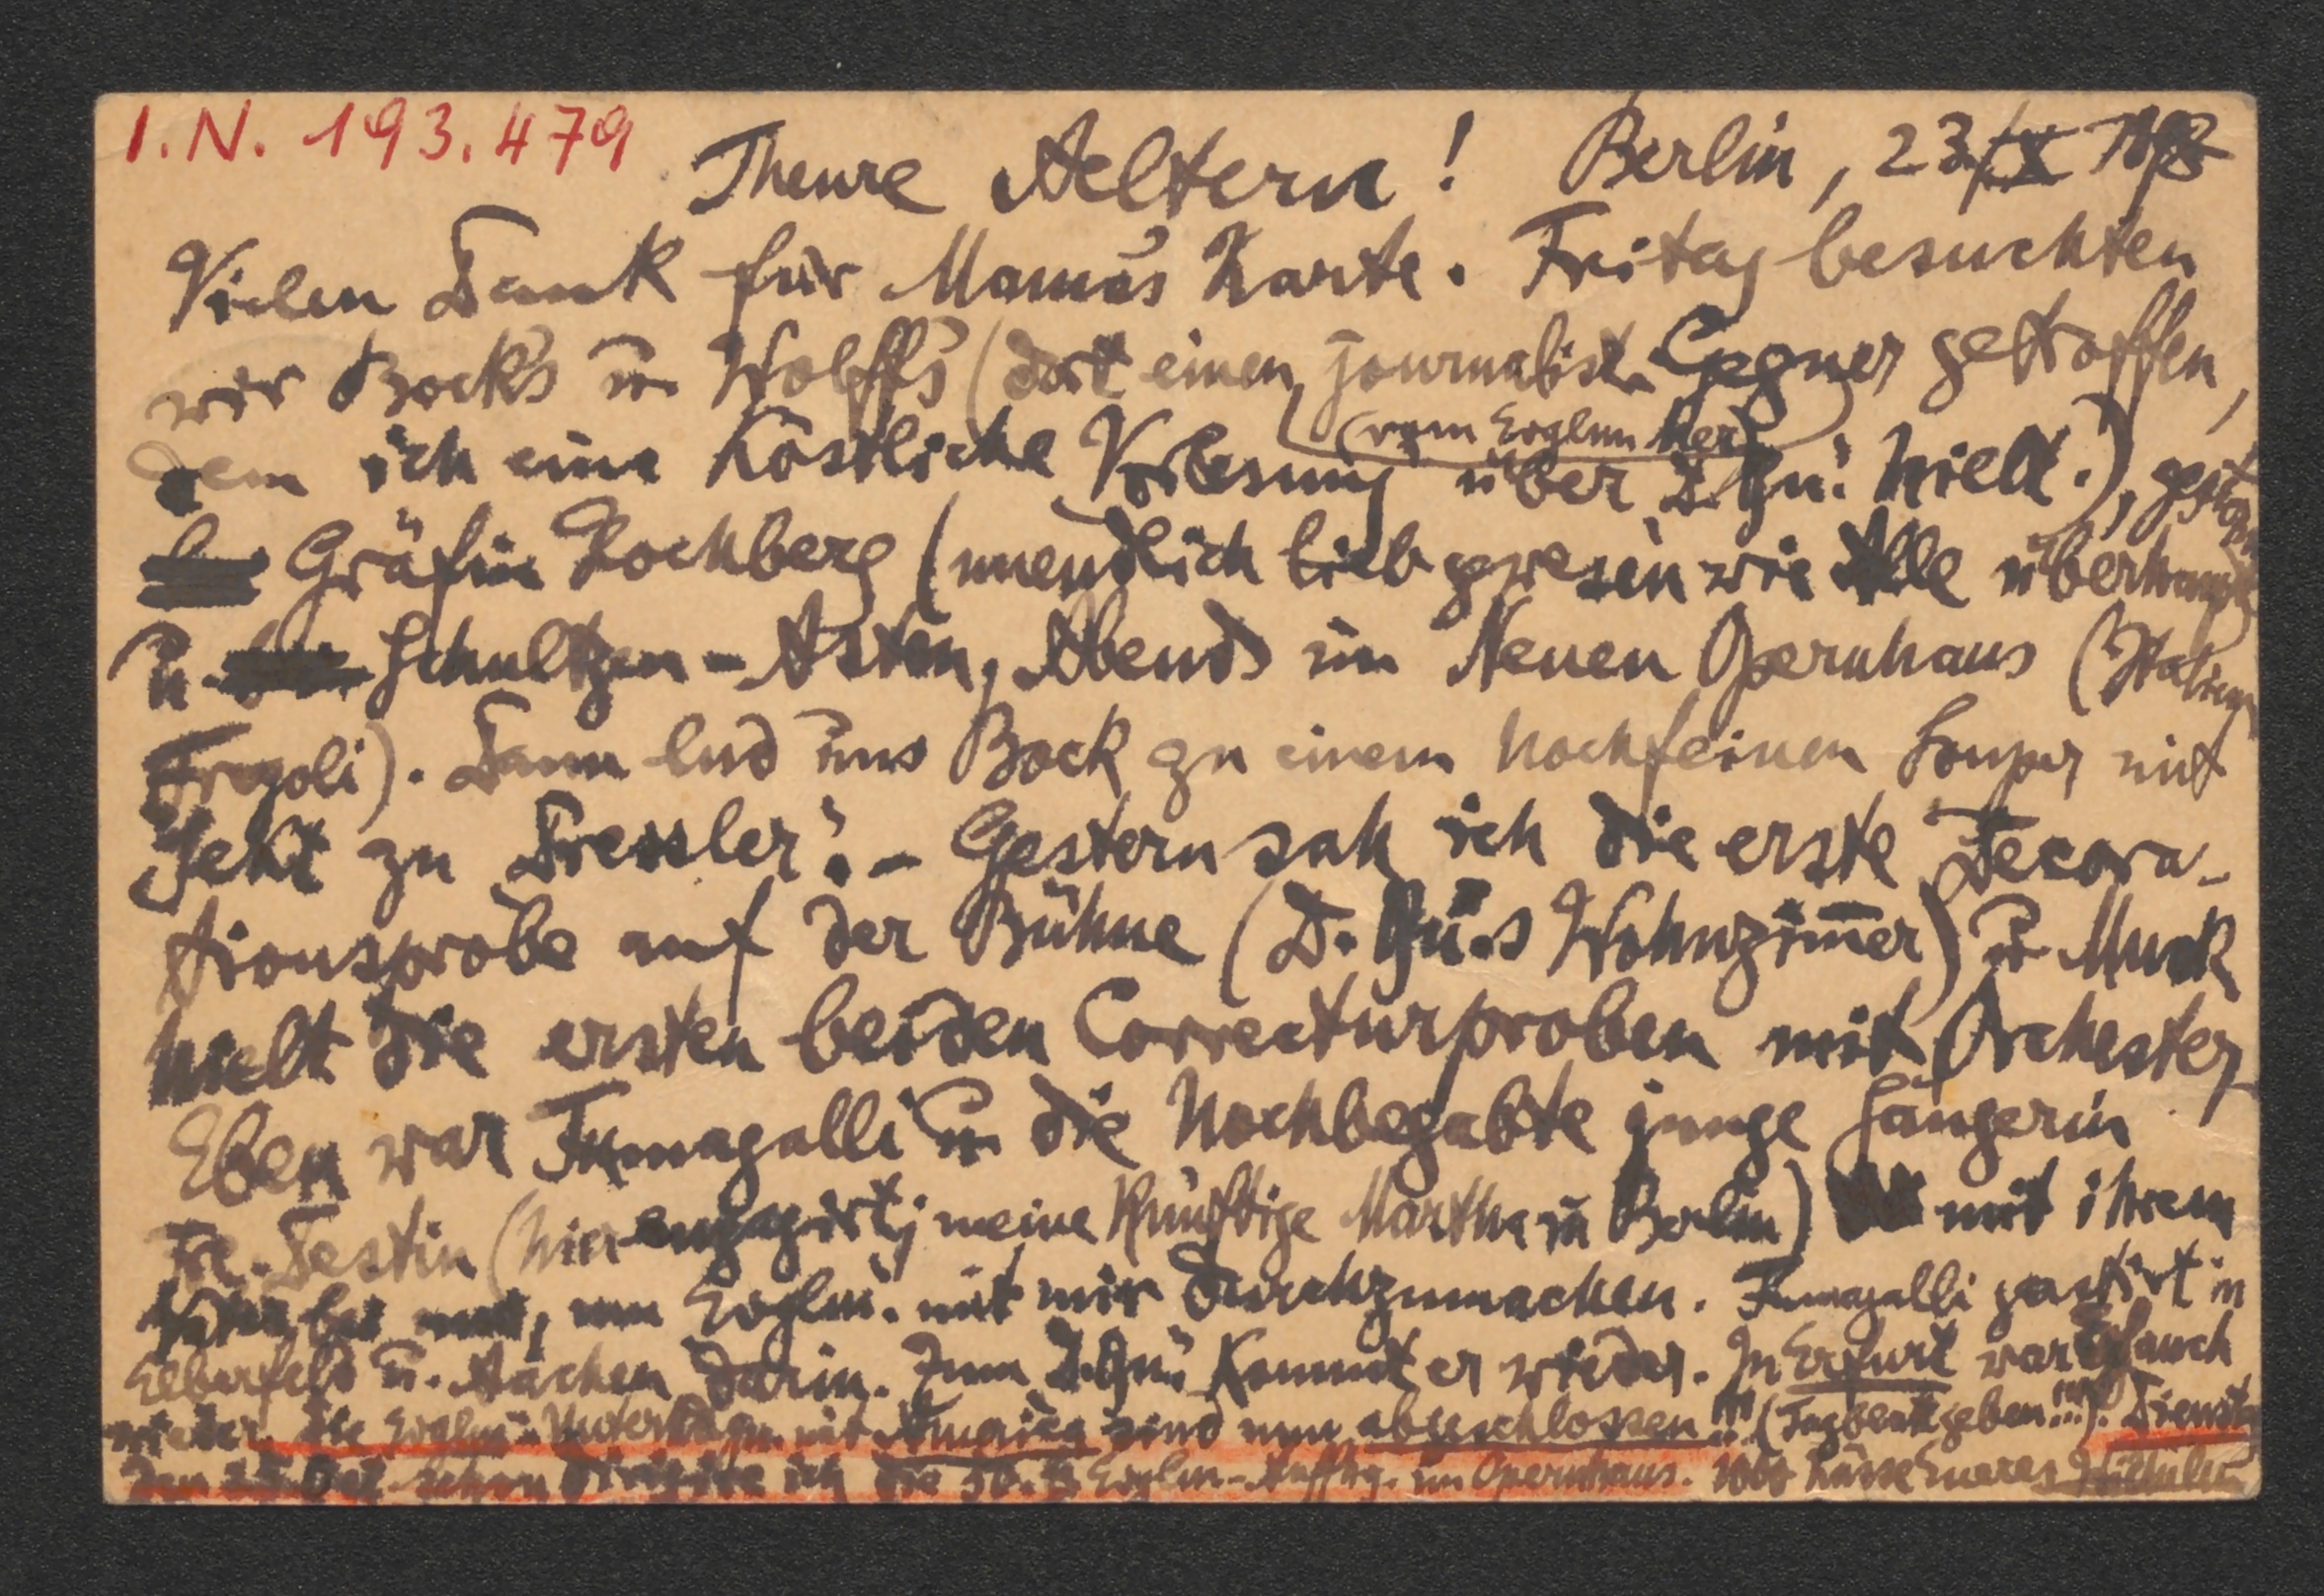 I.N. 193.479
Theure Aeltern! Berlin, 23/X 1898
Vielen Dank für Mama's Karte. Freitag besuchten
wir Bock's u. Wolff's (dort einen journalist. Gegner getroffen,
(vom Evglm. her)
dem ich eine köstliche Vorlesung über D. Qu. hielt.), gestern
Gräfin Hochberg (unendlich lieb gewesen wie Alle überhaupt
u. Schultzen-Asten, Abends im Neuen Opernhaus (Italiener
Fregoli). Dann lud uns Bock zu einem hochfeinen Souper mit
Sekt zu Dressler. - Gestern sah ich die erste Decora-
tionsprobe auf der Bühne (D. Qu.s Wohnzimmer) u. Muck
hielt die ersten beiden Correcturproben mit Orchester
Eben war Fumagalli u. die hochbegabte junge Sängerin
Frl. Destin (hier engagirt; meine künftige Martha in Berlin) mit ihrem
um Evglm. mit mir durchzumachen. Fumagalli gastirt in
Elberfeld u. Aachen darin. Zum D. Qu. kommt er wieder. In Erfurt war auch
wieder. Die Evglm.- mit Amerika sind nun abgeschlossen!!!
den 25. Oct. schon dirigire ich die 50. Evglm.-Auffhg. im Opernhaus. 1000 Küsse Eueres